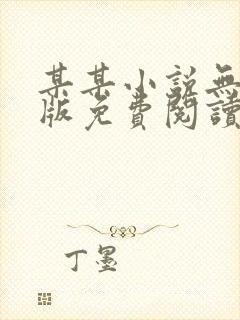 某某小說無
版免費閱讀
丁墨